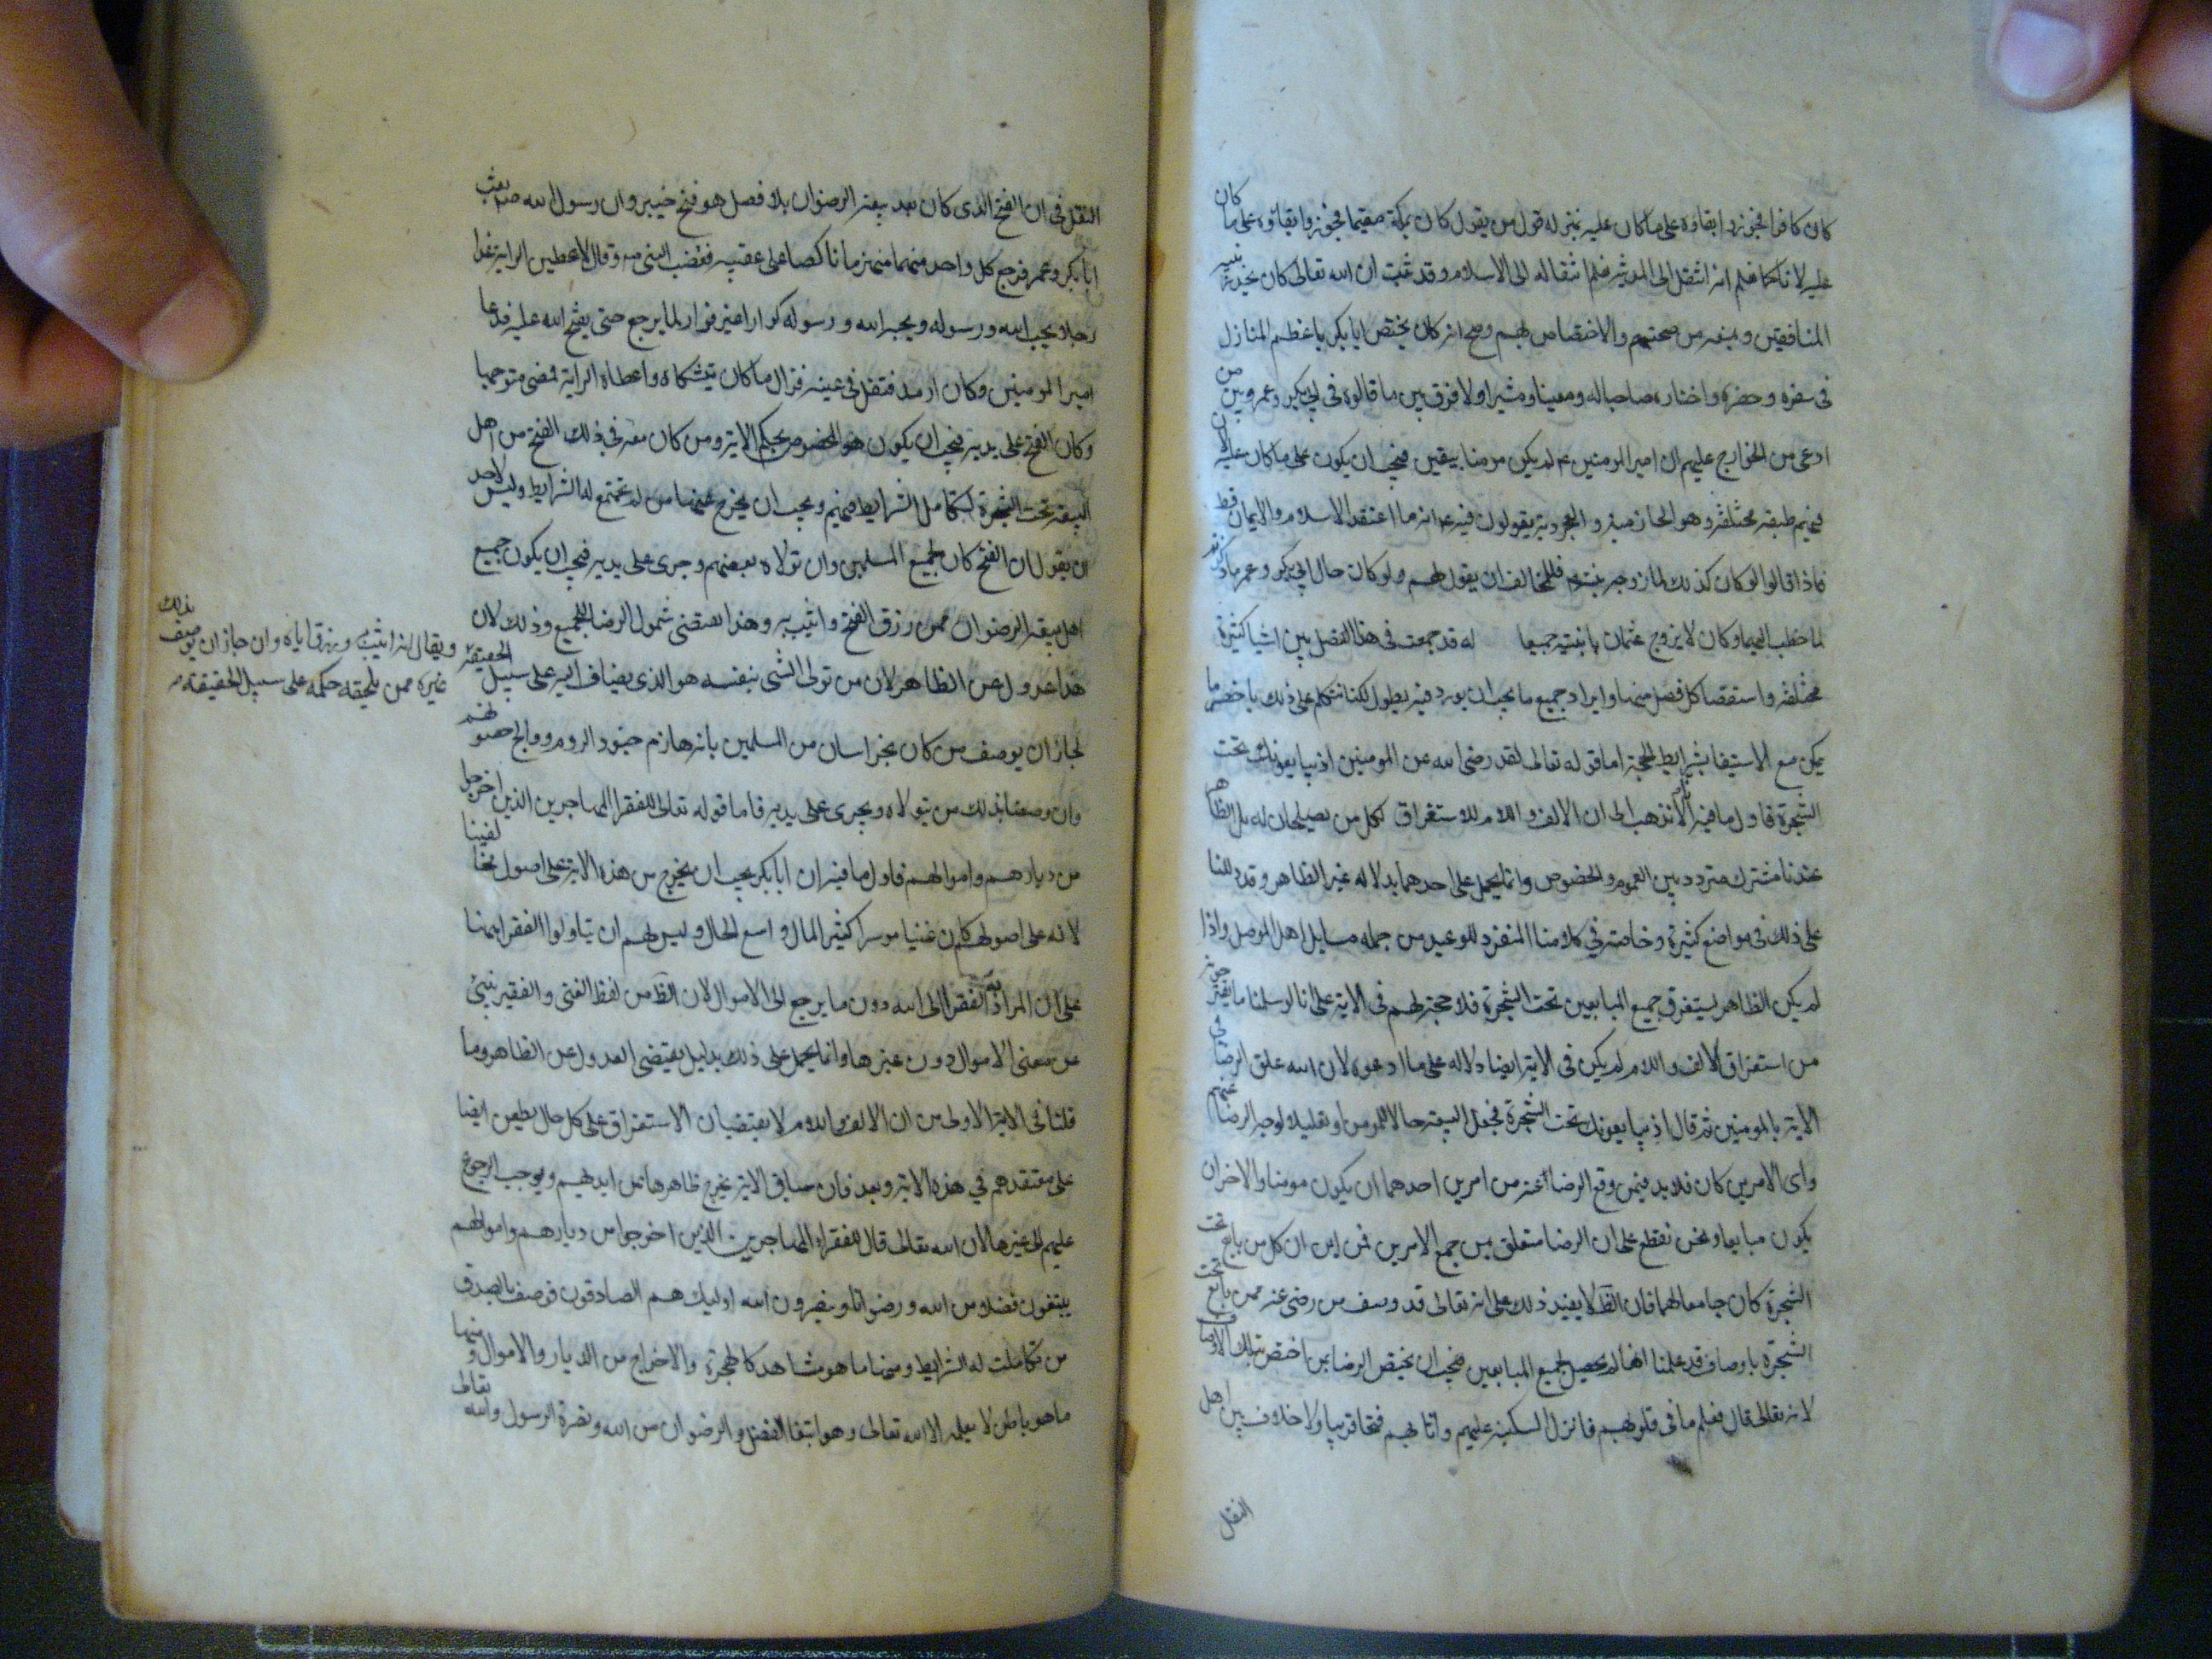 كان كافرا فجوزوا بقاؤه على ما كان عليه بمنزلة قول من يقول كان بمكة مقيما فجوزوا بقاؤه على ما كان
عليه لانا كما نعلم انه انتقل الى المدينة نعلم انتقاله الى الاسلام وقد ثبت ان الله تعالى كان يحذر نبيه
المنافقين ويمنعه من صحبتهم والاختصاص بهم وصح انه كان يختص ابا بكر باعظم المنازل
في سفره وحضره واختاره صاحبا له ومعينا ومشيرا ولا فرق بين ما قالوه في ابي بكر وعمر وبين من
ادعى من الخوارج عليهم ان امير المومنين ع لم يكن مومنا بيقين فيجب ان يكون على ما كان عليه الان
فمنهم طبقة مختلفة وهو الحازمية والعجردية يقولون فيه ع انه ما اعتقد الاسلام والايمان قط
فاذا قالوا لو كان كذلك لما زوجه بنته فللمخالف ان يقول لهم ولو كان حال ابي بكر وعمر ما ذكرته
لما خطب اليهما وكان لا يزوج عثمان بابنتيه جميعا له قد جمعت في هذا الفصل بين اشيا كثيرة
مختلفة واستقصا كل فصل منها وايراد جميع ما يجب ان يورد فيه يطول لكنا نتكلم على ذلك باخصر ما
يمكن مع الاستيفا بشرايط الحجة اما قوله تعالى لقد رضي الله عن المومنين اذ يبايعونك تحت
الشجرة فاول ما فيه انا لا نذهب الى ان الالف واللام للاستغراق لكل من يصلحان له بل الظاهر
عندنا مشترك متردد بين العموم والخصوص وانما يحمل على احدهما بدلالة غير الظاهر وقد دللنا
على ذلك في مواضع كثيرة وخاصة في كلامنا المنفرد للوعيد من جملة مسايل اهل الموصل واذا
لم يكن الظاهر يستغرق جميع المبايعين تحت الشجرة فلا حجة لهم في الاية على انا لو سلمنا ما يقترحونه
من استغراق الالف واللام لم يكن في الاية ايضا دلالة على ما ادعوه لان الله علق الرضا في
الاية بالمومنين ثم قال اذ يبايعونك تحت الشجرة فجعل البيعة حالا للمومن او تعليلا لوجه الرضا عنهم
واي الامرين كان فلا بد فيمن وقع الرضا عنه من امرين احدهما ان يكون مومنا والاخر ان
يكون مبايعا ونحن نقطع على ان الرضا متعلق بمن جمع الامرين فمن اين ان كل من بايع تحت
الشجرة كان جامعا لهما فان الظ لا يفيد ذلك على انه تعالى قد وصف من رضي عنه ممن بايع تحت
الشجرة باوصاف قد علمنا انها لم يحصل لجميع المبايعين فيجب ان يختص الرضا بمن اختص بتلك الاوصاف
لانه تعالى قال فعلم ما في قلوبهم فانزل السكينة عليهم واثابهم فتحا قريبا ولا خلاف بين اهل
النقل
النقل في ان الفتح الذي كان بعد بيعة الرضوان بلا فصل هو فتح خيبر وان رسول الله ص بعث
ابا بكر وعمر فرجع كل واحد منهما منهزما ناكصا على عقبيه فغضب النبي ص وقال لاعطين الراية غدا
رجلا يحب الله ورسوله ويحبه الله ورسوله كرارا غير فرار لا يرجع حتى يفتح الله عليه فدعا
امير المومنين وكان ارمد فتفل في عينه فزال ما كان يتشكاه واعطاه الراية فمضى متوجها
وكان الفتح على يديه فيجب ان يكون هو المخصوص بحكم الاية ومن كان معه في ذلك الفتح من اهل
البيعة تحت الشجرة لتكامل الشرايط فيهم ويجب ان يخرج عنها من لم تجتمع له الشرايط وليس لاحد
ان يقول ان الفتح كان لجميع المسلمين وان تولاه بعضهم وجرى على يديه فيجب ان يكون جميع
اهل بيعة الرضوان ممن رزق الفتح واثيب به وهذا يقتضي شمول الرضا للجميع وذلك لان
هذا عدول عن الظاهر لان من تولى الشي بنفسه هو الذي يضاف اليه على سبيل الحقيقة
ويقال انه اثيب به ورزق اياه وان جاز ان يوصف بذلك
غيره ممن يلحقه حكمه على سبيل الحقيقة
لجاز ان يوصف من كان بخراسان من المسلمين بانه هازم جنود الروم ووالج حصونهم
وان وصفنا بذلك من يتولاه ويجري على يديه فاما قوله تعالى للفقرا المهاجرين الذين اخرجوا
من ديارهم واموالهم فاول ما فيه ان ابا بكر يجب ان يخرج من هذه الاية على اصول مخالفينا
لانه على اصولهم كان غنيا موسرا كثير المال واسع الحال وليس لهم ان يتاولوا الفقر ههنا
على ان المراد به الفقر الى الله دون ما يرجع الى الاموال لان الظ من لفظ الغني والفقير ينبئ
عن معنى الاموال دون غيرها وانما يحمل على ذلك بدليل يقتضي العدول عن الظاهر وما
قلنا في الاية الاولى من ان الالف واللام لا يقتضيان الاستغراق على كل حال يطعن ايضا
على معتقدهم في هذه الاية وبعد فان سياق الاية يخرج ظاهرها من ايديهم ويوجب الرجوع
عليهم الى غيرها لان الله تعالى قال للفقراء المهاجرين الذين اخرجوا من ديارهم واموالهم
يبتغون فضلا من الله ورضوانا وينصرون الله اوليك هم الصادقون فوصف بالصدق
من تكاملت له الشرايط ومنها ما هو مشاهد كالهجرة والاخراج من الديار والاموال ومنها
ما هو باطن لا يعلمه الا الله تعالى وهو ابتغا الفضل والرضوان من الله ونصرة الرسول والله تعالى